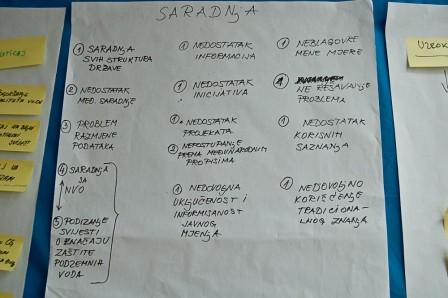 SARADNJA
① SARADNJA
SVIH STRUKTURA
DRŽAVE
② NEDOSTATAK
MEĐ. SARADNJE
③ PROBLEM
RAZMJENE
PODATAKA
④ SARADNJA
SA
NVO
⑤ PODIZANJE
SVIJESTI
O ZNAČAJU
ZAŠTITE
PODZEMNIH
VODA
① NEDOSTATAK
INFORMACIJA
① NEDOSTATAK
INICIJATIVA
① NEDOSTATAK
PROJEKATA
② NEPOSTUPANJE
PREMA MEĐUNARODNIM
PROPISIMA
① NEDOVOLJNA
UKLJUČENOST I
INFORMISANOST
JAVNOG
MJENJA
① NEBLAGOVRE
MENE MJERE
①
NE REŠAVANJE
PROBLEMA
① NEDOSTATAK
KORISNIH
SAZNANJA
① NEDOVOLJNO
KORIŠĆENJE
TRADICIONA-
LNOG ZNANJA
UZROK